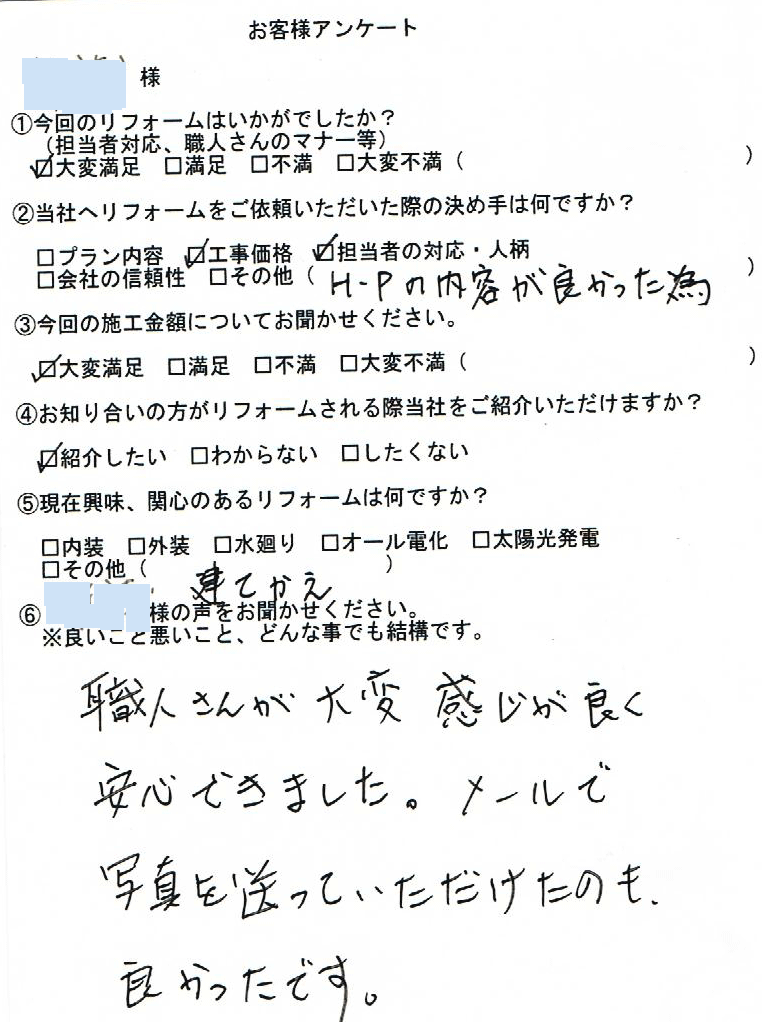 お客様アンケート
様
①今回のリフォームはいかがでしたか？
（担当者対応、職人さんのマナー等）
☑大変満足 □満足 □不満 □大変不満（ ）
②当社へリフォームをご依頼いただいた際の決め手は何ですか？
□プラン内容 ☑工事価格 ☑担当者の対応・人柄
□会社の信頼性 □その他（ H-Pの内容が良かった為 ）
③今回の施工金額についてお聞かせください。
☑大変満足 □満足 □不満 □大変不満（ ）
④お知り合いの方がリフォームされる際当社をご紹介いただけますか？
☑紹介したい □わからない □したくない
⑤現在興味、関心のあるリフォームは何ですか？
□内装 □外装 □水廻り □オール電化 □太陽光発電
□その他（ 建てかえ ）
⑥ 様の声をお聞かせください。
※良いこと悪いこと、どんな事でも結構です。
職人さんが大変感じが良く
安心できました。メールで
写真を送っていただけたのも、
良かったです。